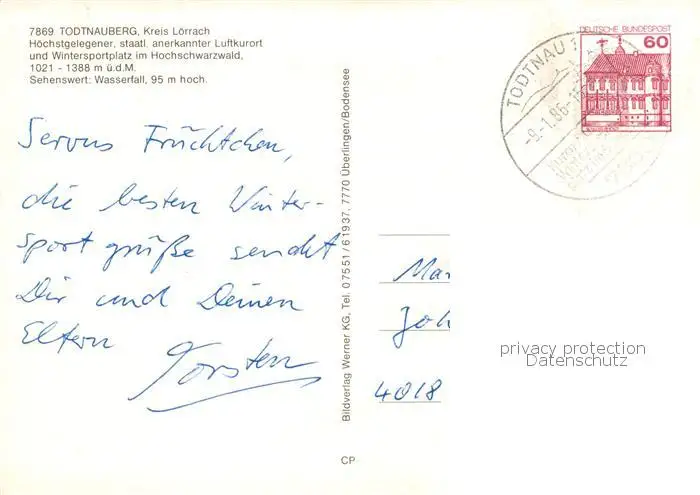 7869 TODTNAUBERG, Kreis Lörrach
Höchstgelegener, staatl. anerkannter Luftkurort
und Wintersportplatz im Hochschwarzwald,
1021 - 1388 m ü.d.M.
Sehenswert: Wasserfall, 95 m hoch.
Servus Früchtchen,
die besten Winter-
sport grüße sendet
Dir und Deinen
Eltern
Torsten
Bildverlag Werner KG, Tel. 07551/61937, 7770 Überlingen/Bodensee
CP
DEUTSCHE BUNDESPOST
60
TODTNAU 1
-9.-1.86-15
Mar
Joh
4018
privacy protection
Datenschutz